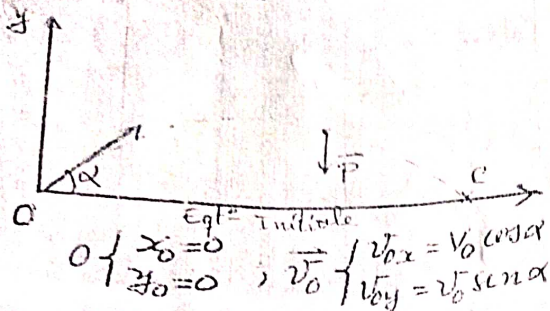 y
α
P
C
O
Eqt° initiale
O { x₀ = 0 ; v₀ { v₀x = V₀ cosα
y₀ = 0 v₀y = v₀ sinα